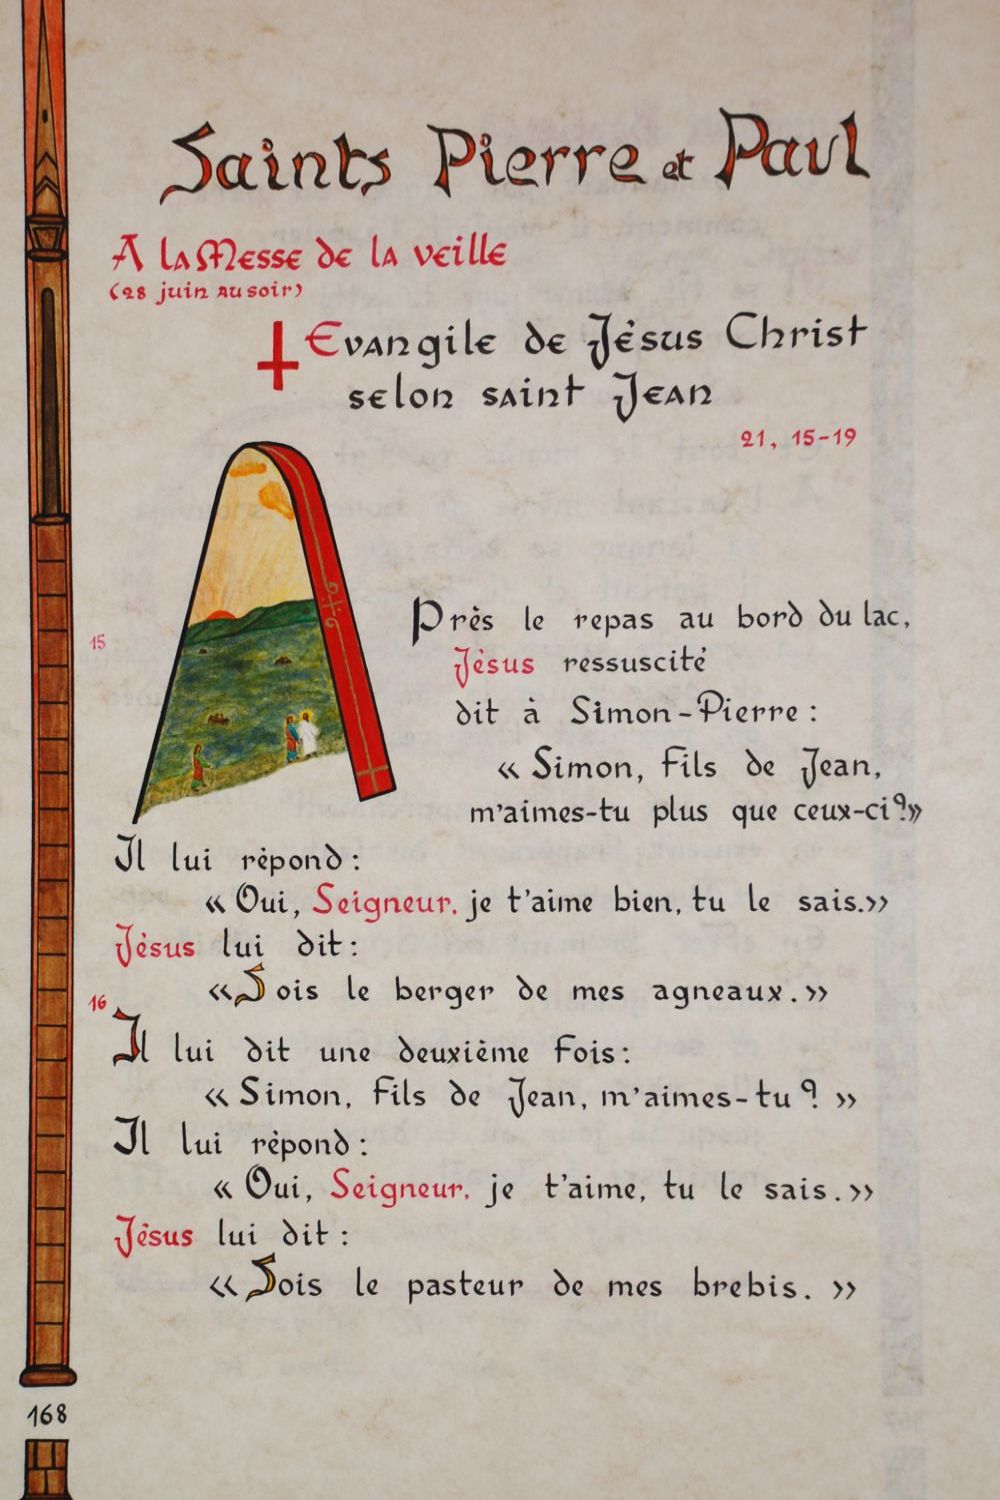 Saints Pierre et Paul
A la Messe de la veille
(28 juin au soir)
Evangile de Jésus Christ
selon saint Jean
21, 15-19
15
Après le repas au bord du lac,
Jésus ressuscité
dit à Simon-Pierre :
« Simon, fils de Jean,
m'aimes-tu plus que ceux-ci ? »
Il lui répond :
« Oui, Seigneur, je t'aime bien, tu le sais. »
Jésus lui dit :
« Sois le berger de mes agneaux. »
16
Il lui dit une deuxième fois :
« Simon, fils de Jean, m'aimes-tu ? »
Il lui répond :
« Oui, Seigneur, je t'aime, tu le sais. »
Jésus lui dit :
« Sois le pasteur de mes brebis. »
168